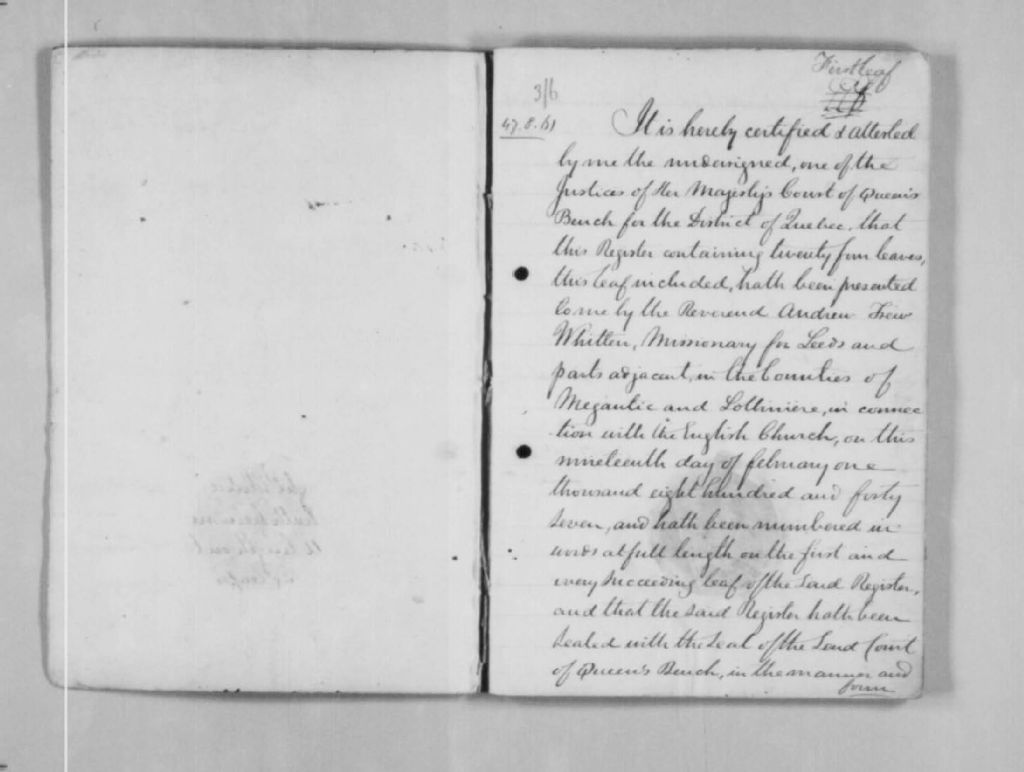 First leaf
3/6
47.8.61
It is hereby certified & attested
by me the undersigned, one of the
Justices of Her Majesty's Court of Queen's
Bench for the District of Quebec, that
this Register containing twenty four leaves,
this leaf included, hath been presented
to me by the Reverend Andrew Trew
Whitten, Missionary for Leeds and
parts adjacent, in the Counties of
Megantic and Lotbiniere, in connec
tion with the English Church, on this
nineteenth day of february one
thousand eight hundred and forty
seven, and hath been numbered in
words at full length on the first and
every succeeding leaf of the said Register,
and that the said Register hath been
sealed with the seal of the said Court
of Queen's Bench, in the manner and
form